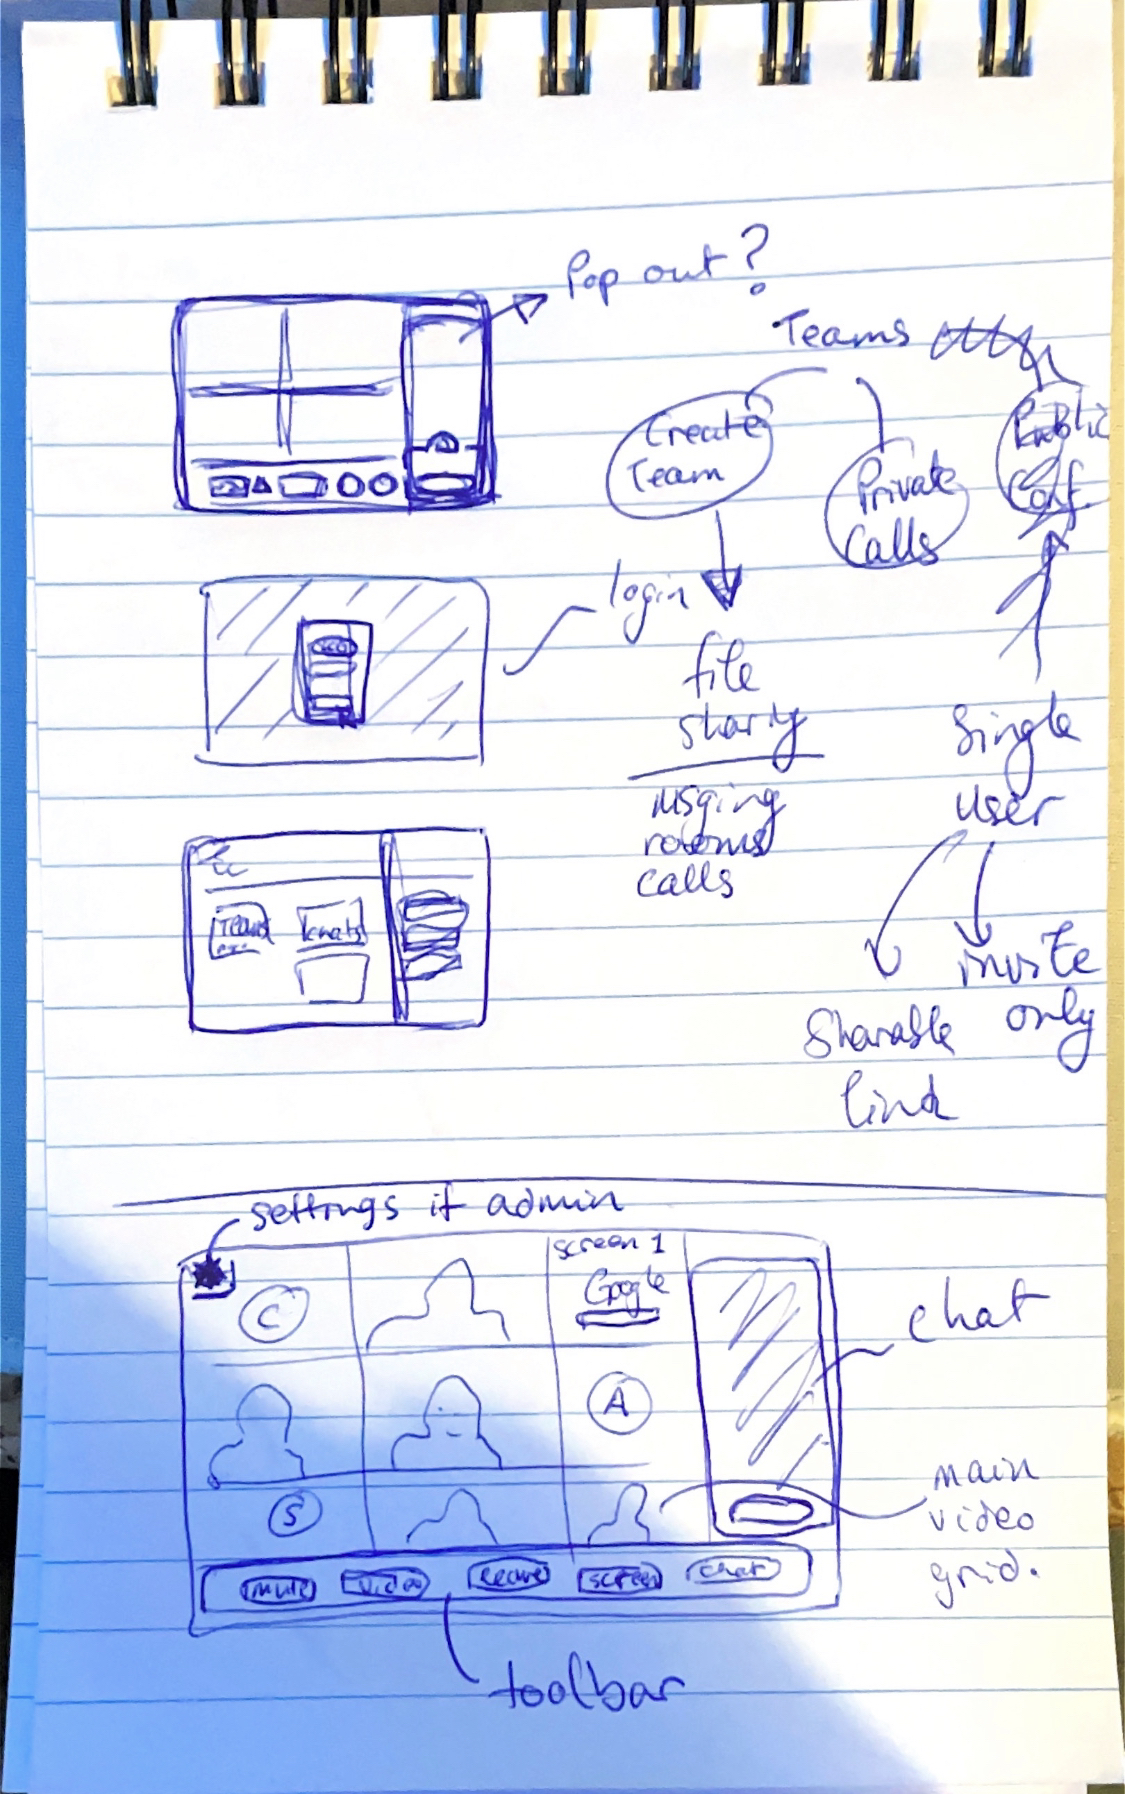 Pop out?
Teams
Create
Team
Private
Calls
Public
Conf
login
file
sharing
msging
rooms
calls
Single
user
Sharable
link
invite
only
Teams
chats
settings if admin
screen 1
Google
C
A
S
chat
main
video
grid.
mute
video
leave
screen
chat
toolbar